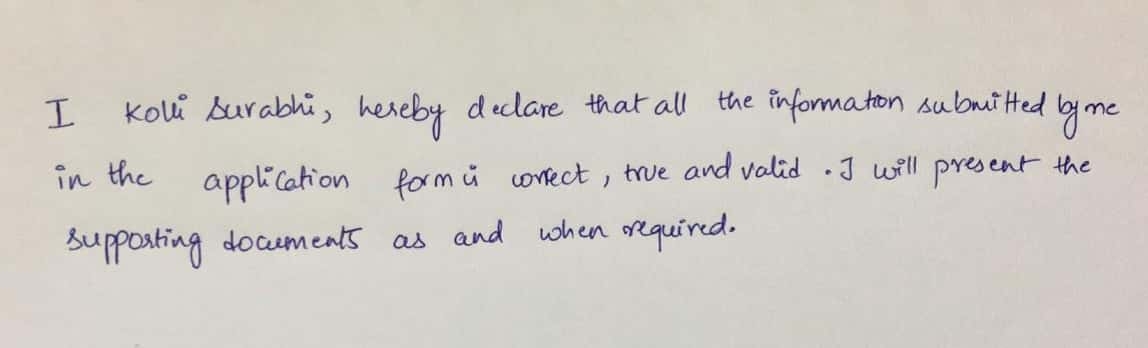 I Kolli Surabhi, hereby declare that all the information submitted by me
in the application form is correct, true and valid. I will present the
supporting documents as and when required.